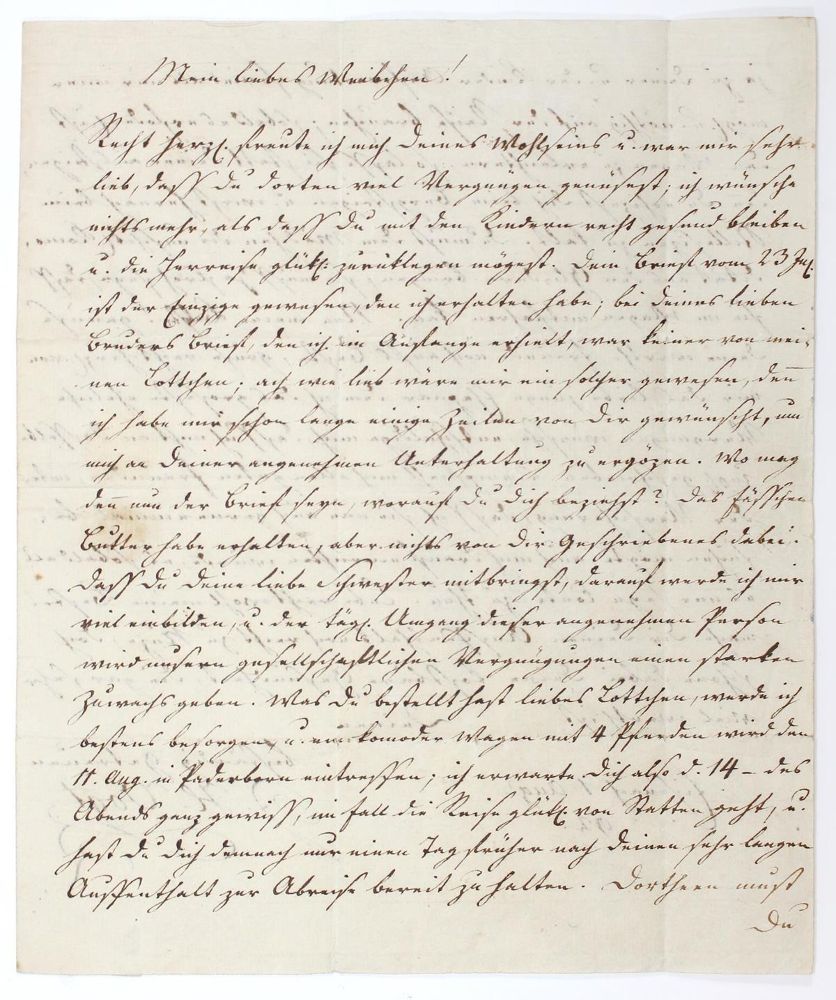 Mein liebes Weibchen!
Recht herzl. freute ich mich Deines Wohlseins u. war mir sehr
lieb, dass Du dorten viel Vergnügen genüsest; ich wünsche
nichts mehr, als dass Du mit den Kindern recht gesund bleiben
u. die Herreise glükl. zurüklegen mögest. Dein Brief vom 23 Jul.
ist der Einzige gewesen, den ich erhalten habe; bei Deines lieben
Bruders Brief, den ich im Anfange erhielt, war keiner von mei-
nen Lottchen; ach wie lieb wäre mir ein solcher gewesen, den̄
ich habe mir schon lange einige Zeilen von Dir gewünscht, um
mich an Deiner angenehmen Unterhaltung zu ergözen. Wo mag
den̄ nun der Brief seyn, worauf Du Dich beziehst? Das Fässchen
Butter habe erhalten, aber nichts von Dir Geschriebenes dabei.
Dass Du Deine liebe Schwester mitbringst, darauf werde ich mir
viel einbilden, u. der tägl. Umgang dieser angenehmen Person
wird unsern gesellschaftlichen Vergnügungen einen starken
Zuwachs geben. Was Du bestellt hast liebes Lottchen, werde ich
bestens besorgen, u. ein komoder Wagen mit 4 Pferden wird den
11. Aug. in Paderborn eintreffen; ich erwarte Dich also d. 14 – des
Abends ganz gewiss, im Fall die Reise glükl. von Statten geht, u.
hast Du Dich demnach nur einen Tag früher nach Deinen sehr langen
Aufenthalt zur Abreise bereit zu halten. Dortheen must
Du